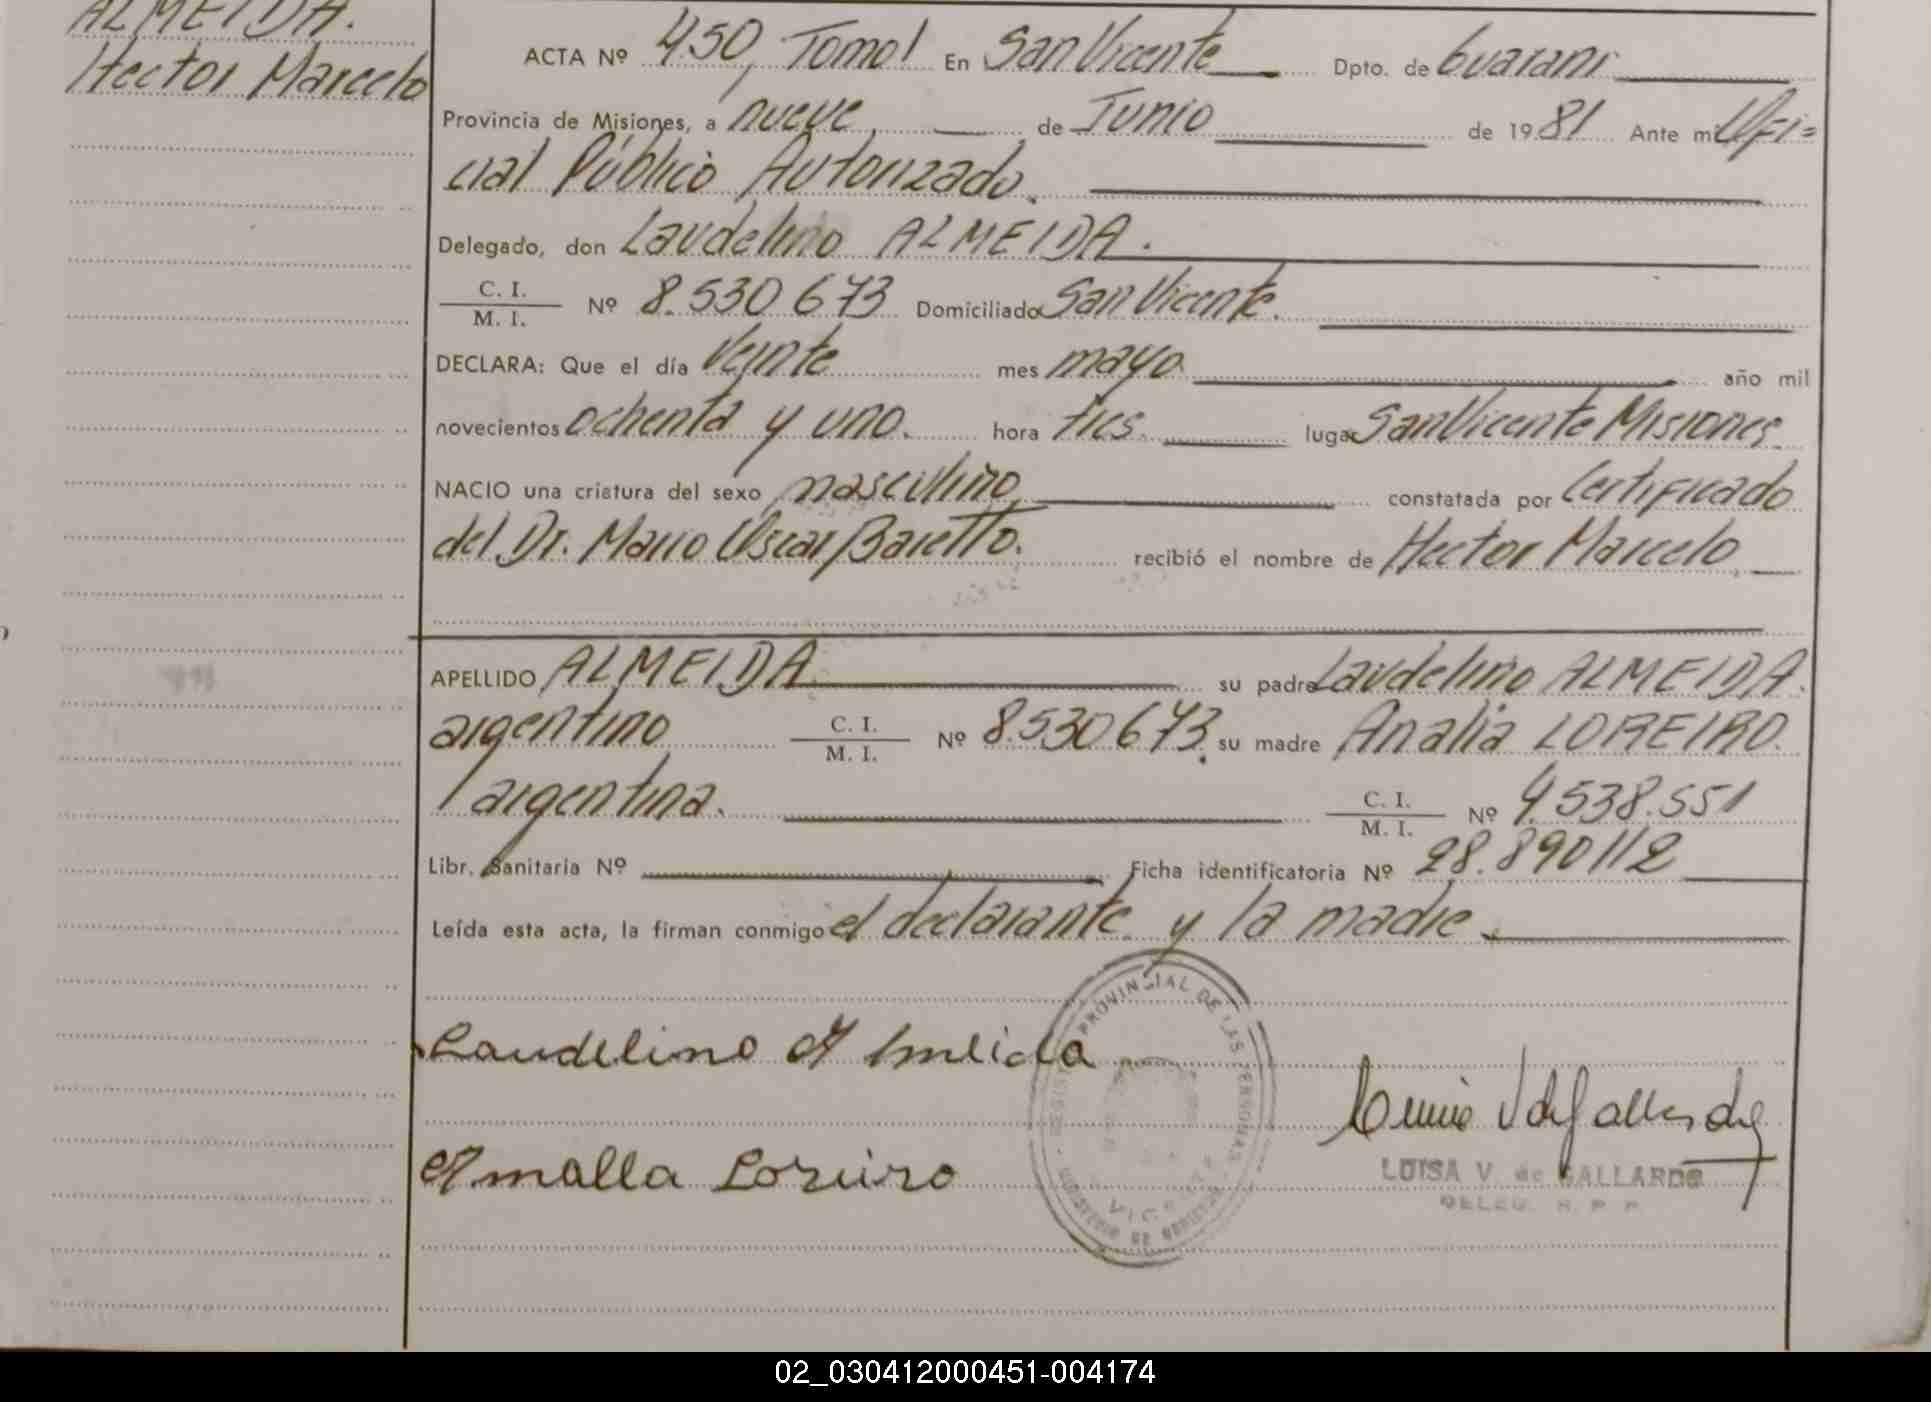 ALMEIDA.
Hector Marcelo
ACTA Nº 450, Tomo I En San Vicente Dpto. de Guarani
Provincia de Misiones, a nueve, de Junio de 1981 Ante mi Ofi=
cial Público Autorizado.
Delegado, don Laudelino ALMEIDA.
C. I.
M. I. Nº 8.530.673 Domiciliado San Vicente.
DECLARA: Que el día veinte mes mayo año mil
novecientos ochenta y uno. hora tres. lugar San Vicente Misiones
NACIO una criatura del sexo masculino, constatada por Certificado
del Dr. Mario Oscar Baretto. recibió el nombre de Hector Marcelo
APELLIDO ALMEIDA su padre Laudelino ALMEIDA.
argentino C. I.
M. I. Nº 8.530.673. su madre Analia LOREIRO.
argentina. C. I.
M. I. Nº 4.538.551
Libr. Sanitaria Nº Ficha identificatoria Nº 28.890112
Leída esta acta, la firman conmigo el declarante y la madre.
PROVINCIAL DE LAS PERSONAS
Laudelino Almeida
Loreiro
LUISA V. de GALLARDO
DELEG. R. P. P.
02_030412000451-004174